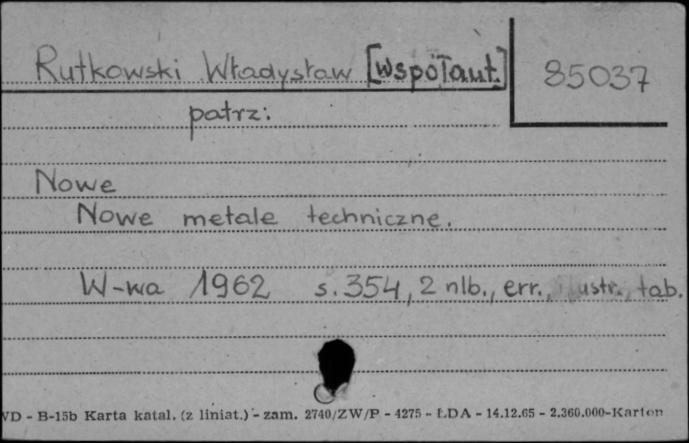 Rutkowski Władysław [współaut.] 85037
patrz:
Nowe
Nowe metale techniczne.
W-wa 1962 s. 354, 2 nlb., err., ilustr., tab.
WD - B-15b Karta katal. (z liniat.) - zam. 2740/ZW/P - 4275 - ŁDA - 14.12.65 - 2.360.000-Karton